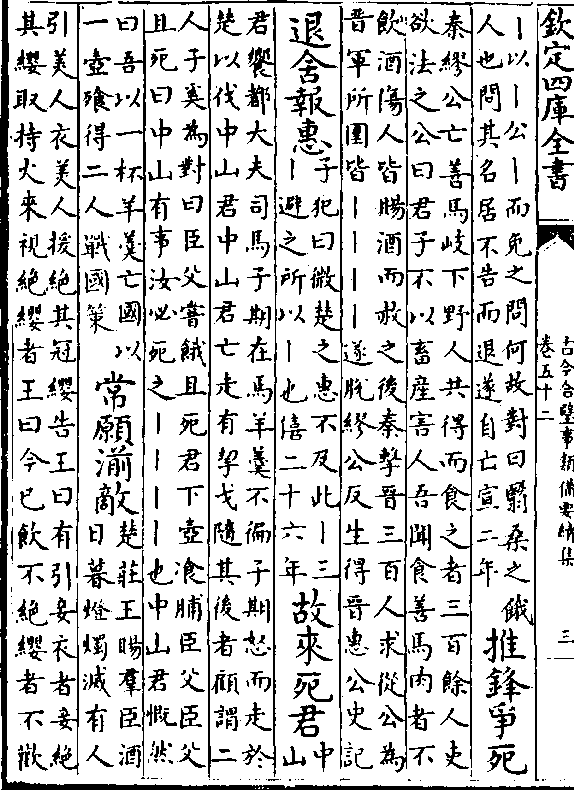 欽定四庫全書
古今合璧事類備要續集
卷五十二
三
丨以丨公丨而免之問何故對曰翳桑之餓
人也問其名居不告而退遂自亡宣二年
推鋒爭死
秦繆公亡善馬岐下野人共得而食之者三百餘人吏
欲法之公曰君子不以畜産害人吾聞食善馬肉者不
飲酒傷人皆賜酒而赦之後秦擊晉三百人求從公為
晉軍所圍皆丨丨丨丨遂脱繆公反生得晉惠公史記
退舍報惠
子犯曰微楚之惠不及此丨三
丨避之所以丨也僖二十六年
故來死君
中
山
君饗都大夫司馬子期在焉羊羮不徧子期怒而走於
楚以伐中山君中山君亡走有挈戈隨其後者顧謂二
人子奚為對曰臣父嘗餓且死君下壺飡脯臣父臣父
且死曰中山有事汝必死之丨丨丨丨也中山君慨然
曰吾以一杯羊羮亡國以
一壺飱得二人戰國策
常願湔敵
楚莊王賜羣臣酒
日暮燈燭滅有人
引美人衣美人援絶其冠纓告王曰有引妾衣者妾絶
其纓取持火來視絶纓者王曰今已飲不絶纓者不歡